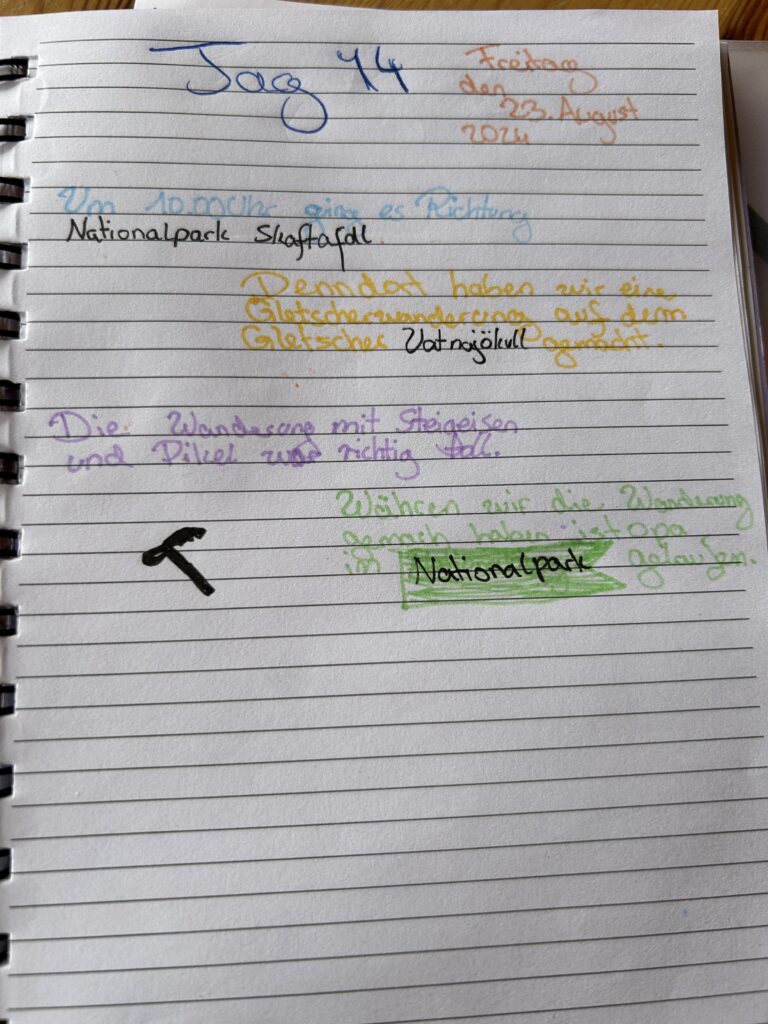 Tag 14
Freitag
den
23. August
2024
Um 10.00Uhr ging es Richtung
Nationalpark Skaftafdl.
Denndort haben wir eine
Gletscherwanderung auf dem
Gletscher Vatnajökull gemacht.
Die Wanderung mit Steigeisen
und Pikel war richtig toll.
Währen wir die Wanderung
gemach haben ist opa
im Nationalpark gelaufen.